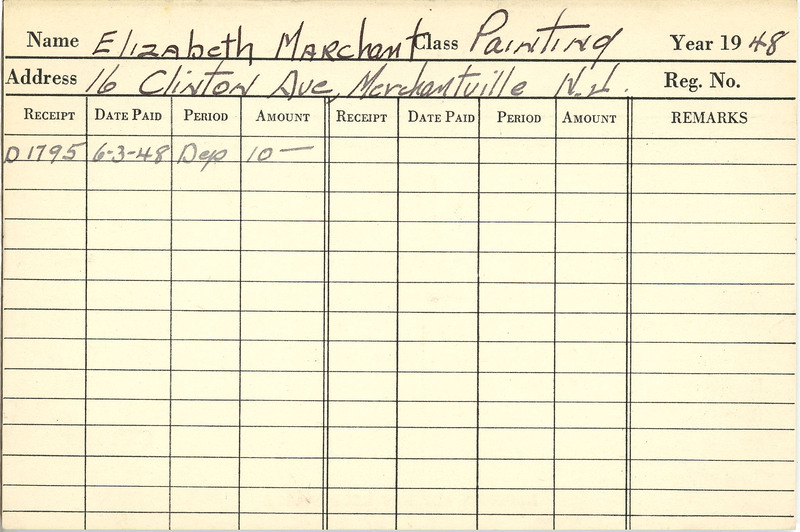 Name Elizabeth Marchant Class Painting Year 1948
Address 16 Clinton Ave, Merchantville N.J. Reg. No.
RECEIPT DATE PAID PERIOD AMOUNT RECEIPT DATE PAID PERIOD AMOUNT REMARKS
D1795 6-3-48 Dep 10—